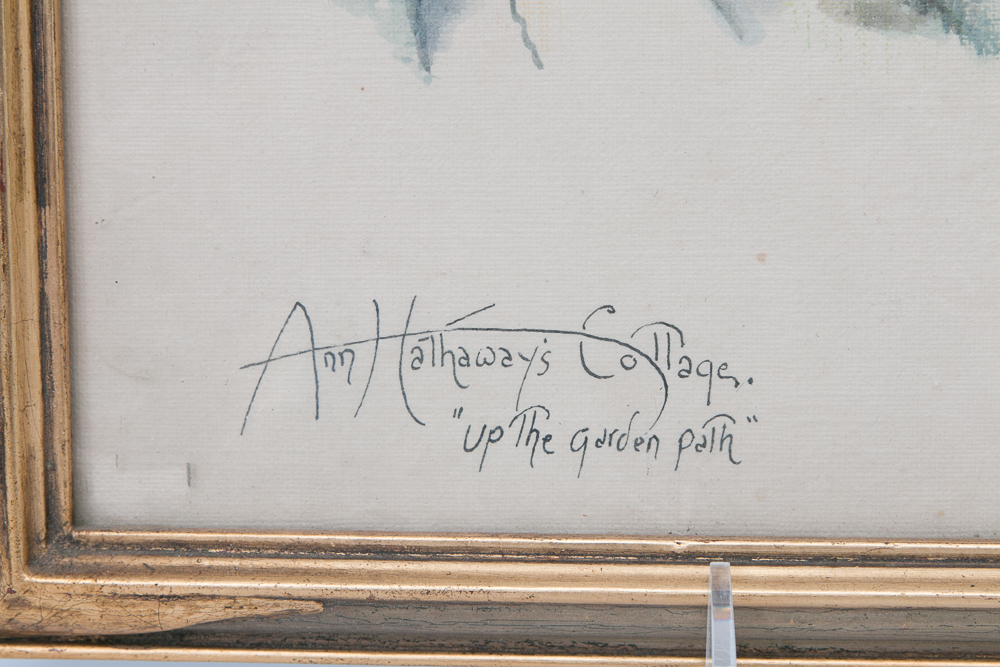 Ann Hathaway's Cottage.
"up the garden path"